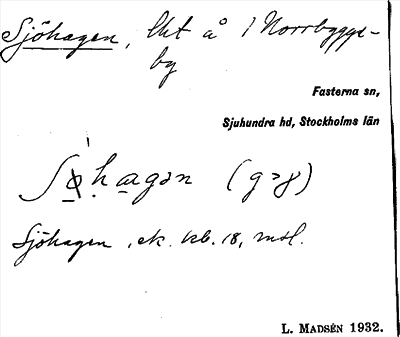 Sjöhagen, lht å 1 Norrbygge-
by
Fasterna sn,
Sjuhundra hd, Stockholms län
hagən (g>ɣ)
Sjöhagen, ek. kb. 18, mtl.
L. Madsén 1932.